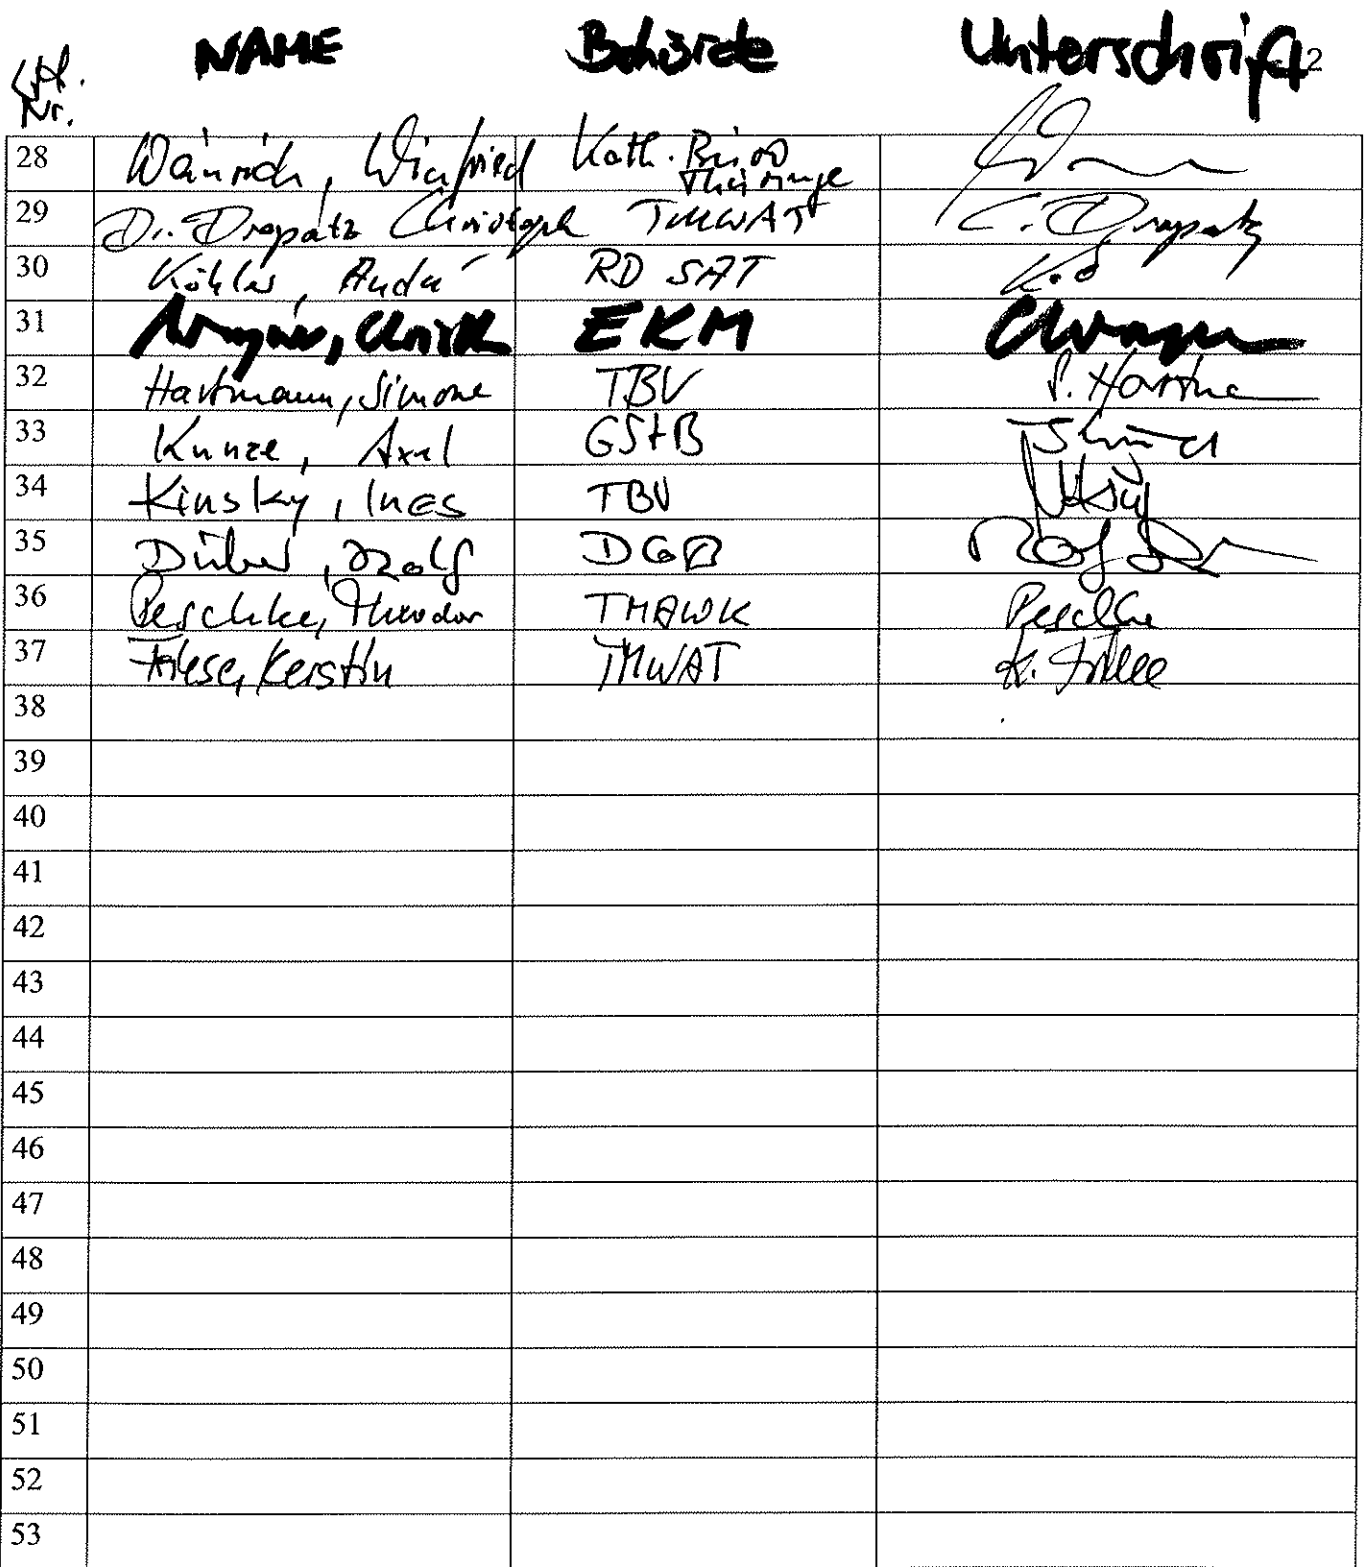 Lfd. Nr. NAME Behörde Unterschrift 2
28 Weinrich, Winfried Kath. Büro Thüringen
29 Dr. Dropatz Christoph TMWAT C. Dropatz
30 Köhler, André RD SAT
31 EKM
32 Hartmann, Simone TBV S. Hartma
33 Kunze, Axel GStB
34 Kinsky, Ines TBV
35 Düber, Rolf DGB
36 Peschke, Theodor TMBWK Peschke
37 Friese, Kerstin TMWAT K. Friese
38
39
40
41
42
43
44
45
46
47
48
49
50
51
52
53